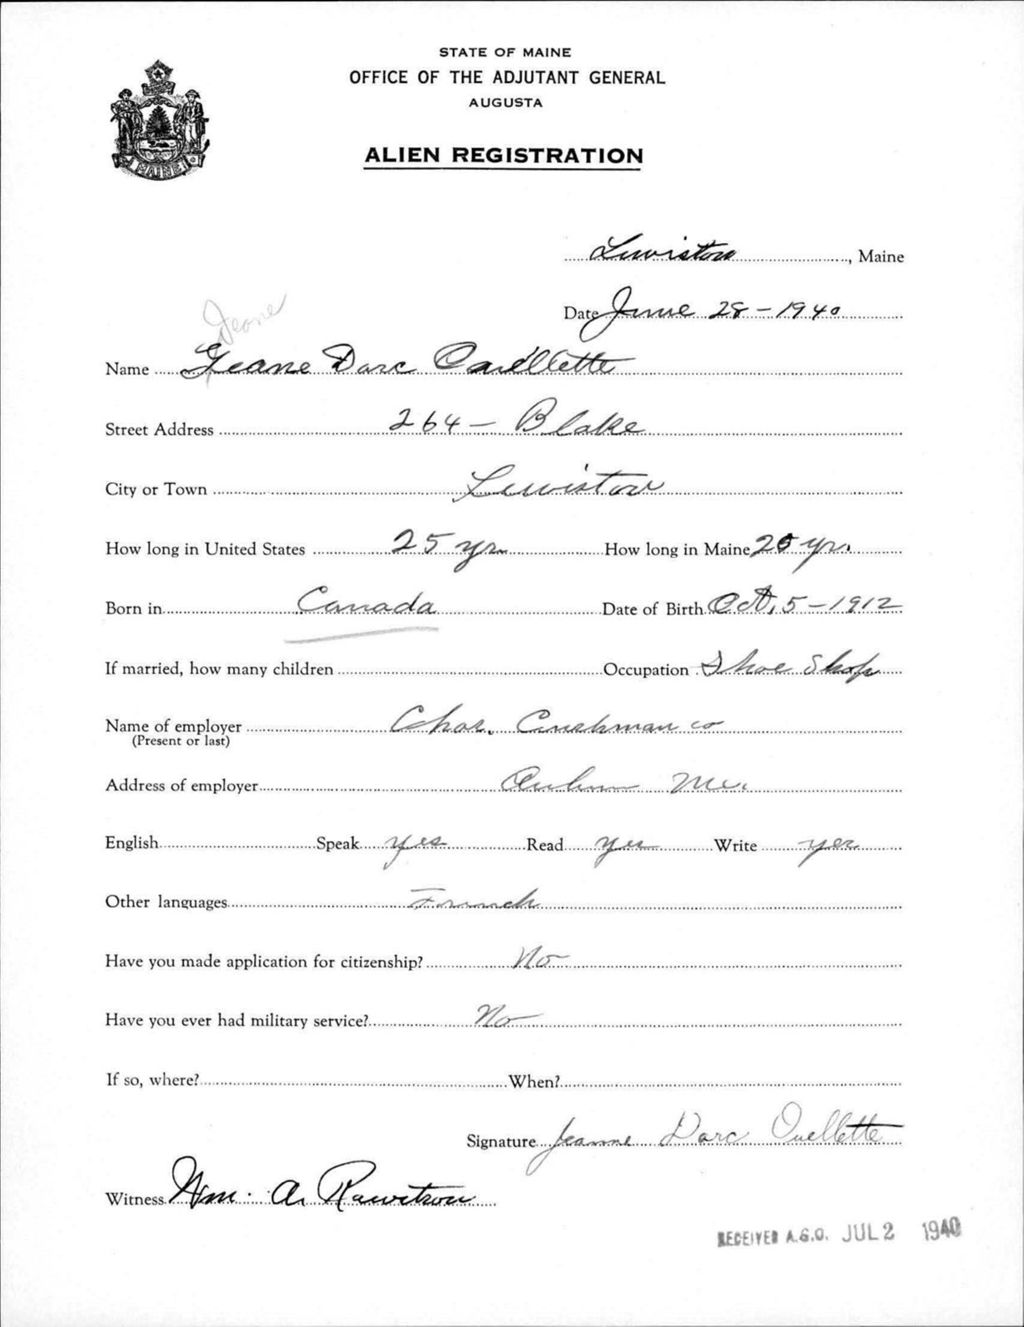 STATE OF MAINE
OFFICE OF THE ADJUTANT GENERAL
AUGUSTA
ALIEN REGISTRATION
MAINE
Lewiston, Maine
Date June 28-1940
Jeane
Name Geane Darc Ouellette
Street Address 264 - Blake
City or Town Lewiston
How long in United States 25 yr. How long in Maine 20 yr.
Born in Canada Date of Birth Oct, 5-1912
If married, how many children Occupation Shoe Shop
Name of employer Chas. Cushman co
(Present or last)
Address of employer Auburn Me.
English Speak yes Read yes Write yes
Other languages French
Have you made application for citizenship? No
Have you ever had military service? No
If so, where? When?
Signature Jeanne Darc Ouellette
Witness Wm. A.
RECEIVED A.G.O. JUL 2 1940